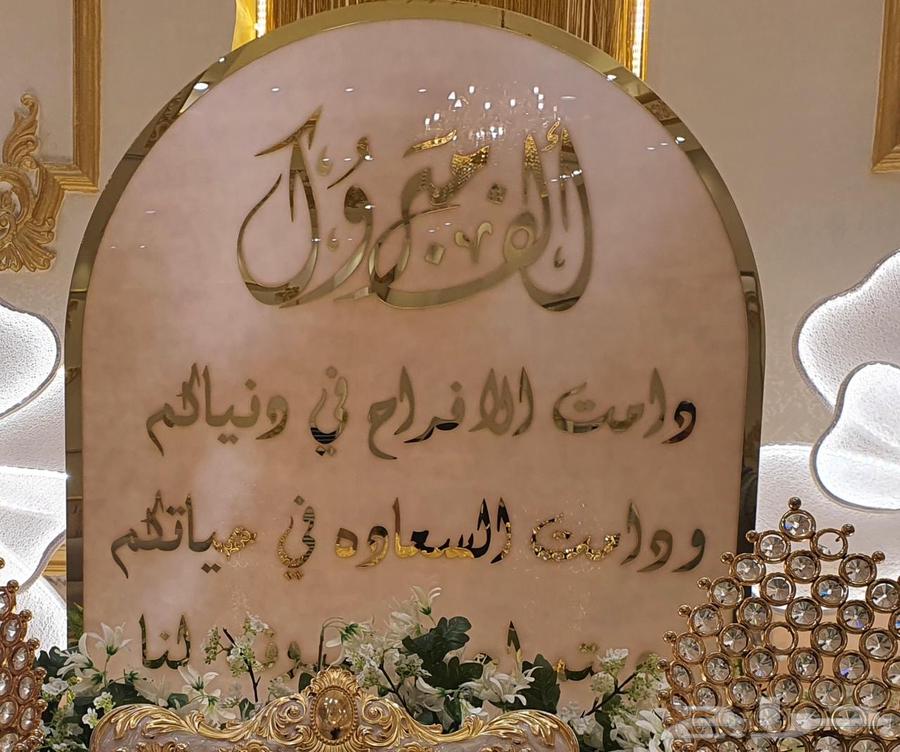 ألف مبروك
دامت الافراح في دنياكم
ودامت السعاده في حياتكم
لنا
حراج